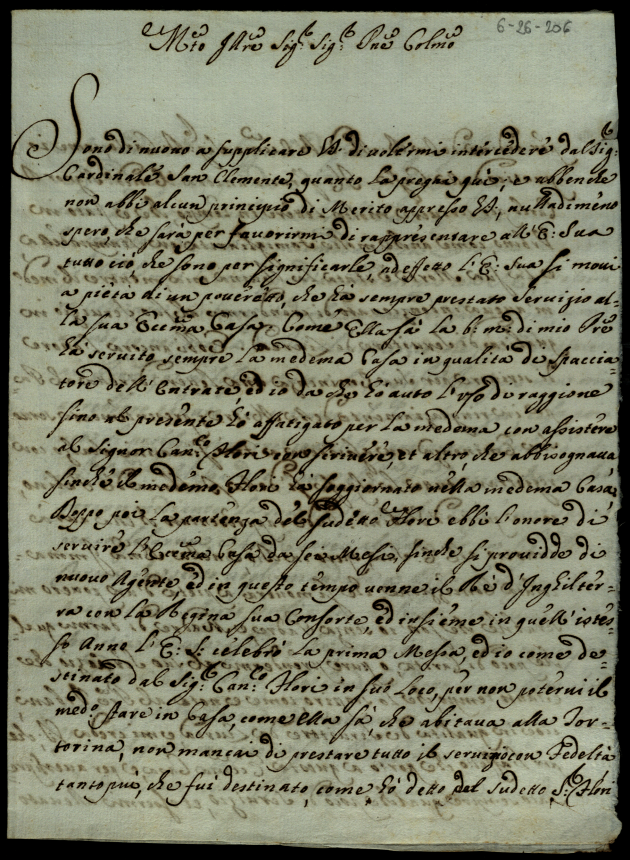 6-26-206
Mto Illre Sigr Sigr Pne Colmo
Sono di nuouo a supplicare VS di uolermi intercedere dal Sigr
Cardinale San Clemente, quanto la prego qui, e abbenche
non abbi alcun principio di Merito appresso VS, nulladimeno
spero, che sarà per fauorirmi di rappresentare all'E: Sua
tutto ciò, che sono per significarle, ad effetto l'E: Sua si moui
a pietà di un pouero, che hà sempre prestato seruizio al-
la sua Eccma Casa. Come Ella sà la b: m: di mio Pre
hà seruito sempre la medema Casa in qualità di spaccia-
tore dell'Entrate, ed io da che hò auto l'uso di raggione
sino al presente hò affatigato per la medema con assistere
al Signor Can:co Flori con scriuere, et altro, che abbisognaua
sinche il medemo Flori hà soggiornato nella medema Casa,
Doppo poi la partenza del sudetto Flori ebbi l'onore di
seruire l'Eccma Casa da sei Mesi, sinche si prouidde di
nuouo Agente, ed in questo tempo uenne il Rè d'Inghilter-
ra con la Regina sua Consorte, ed insieme in quell'istes-
so Anno l'E: S: celebrò la prima Messa, ed io come de-
stinato dal Sigr Can:co Flori in suo loco, per non poterui il
medo stare in Casa, come ella sà, che abitaua alla Tor-
torina, non mancai di prestare tutto il seruizio con Fedeltà
tanto più, che fui destinato, come hò detto dal sudetto Sr Flori